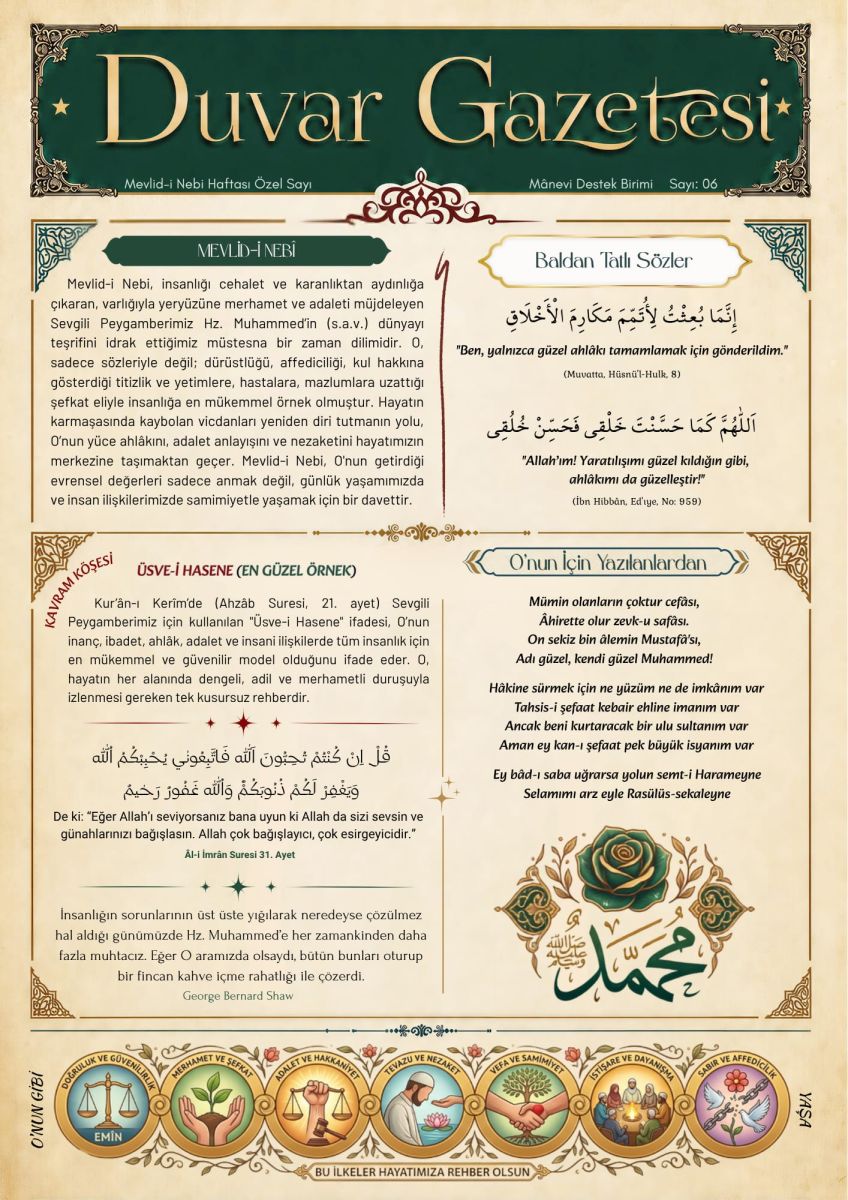 Duvar Gazetesi
Mevlid-i Nebi Haftası Özel Sayı
Mânevi Destek Birimi Sayı: 06
MEVLİD-İ NEBİ
Mevlid-i Nebi, insanlığı cehalet ve karanlıktan aydınlığa
çıkaran, varlığıyla yeryüzüne merhamet ve adaleti müjdeleyen
Sevgili Peygamberimiz Hz. Muhammed’in (s.a.v.) dünyayı
teşrifini idrak ettiğimiz müstesna bir zaman dilimidir. O,
sadece sözleriyle değil; dürüstlüğü, affediciliği, kul hakkına
gösterdiği titizlik ve yetimlere, hastalara, mazlumlara uzattığı
şefkat eliyle insanlığa en mükemmel örnek olmuştur. Hayatın
karmaşasında kaybolan vicdanları yeniden diri tutmanın yolu,
O’nun yüce ahlâkını, adalet anlayışını ve nezaketini hayatımızın
merkezine taşımaktan geçer. Mevlid-i Nebi, O'nun getirdiği
evrensel değerleri sadece anmak değil, günlük yaşamımızda
ve insan ilişkilerimizde samimiyetle yaşamak için bir davettir.
Baldan Tatlı Sözler
إِنَّمَا بُعِثْتُ لِأُتَمِّمَ مَكَارِمَ الْأَخْلَاقِ
"Ben, yalnızca güzel ahlâkı tamamlamak için gönderildim."
(Muvatta, Hüsnü'l-Hulk, 8)
اَللّٰهُمَّ كَمَا حَسَّنْتَ خَلْقِى فَحَسِّنْ خُلُقِى
"Allah’ım! Yaratılışımı güzel kıldığın gibi,
ahlâkımı da güzelleştir!"
(İbn Hibbân, Ed'ıye, No: 959)
KAVRAM KÖŞESİ
ÜSVE-İ HASENE (EN GÜZEL ÖRNEK)
Kur’ân-ı Kerîm’de (Ahzâb Suresi, 21. ayet) Sevgili
Peygamberimiz için kullanılan "Üsve-i Hasene" ifadesi, O’nun
inanç, ibadet, ahlâk, adalet ve insani ilişkilerde tüm insanlık için
en mükemmel ve güvenilir model olduğunu ifade eder. O,
hayatın her alanında dengeli, adil ve merhametli duruşuyla
izlenmesi gereken tek kusursuz rehberdir.
قُلْ اِنْ كُنْتُمْ تُحِبُّونَ اللّٰهَ فَاتَّبِعُونٖي يُحْبِبْكُمُ اللّٰهُ
وَيَغْفِرْ لَكُمْ ذُنُوبَكُمْؕ وَاللّٰهُ غَفُورٌ رَحٖيمٌ
De ki: “Eğer Allah’ı seviyorsanız bana uyun ki Allah da sizi sevsin ve
günahlarınızı bağışlasın. Allah çok bağışlayıcı, çok esirgeyicidir.”
Âl-i İmrân Suresi 31. Ayet
İnsanlığın sorunlarının üst üste yığılarak neredeyse çözülmez
hal aldığı günümüzde Hz. Muhammed’e her zamankinden daha
fazla muhtacız. Eğer O aramızda olsaydı, bütün bunları oturup
bir fincan kahve içme rahatlığı ile çözerdi.
George Bernard Shaw
O’nun İçin Yazılanlardan
Mümin olanların çoktur cefâsı,
Âhirette olur zevk-u safâsı.
On sekiz bin âlemin Mustafâ’sı,
Adı güzel, kendi güzel Muhammed!
Hâkine sürmek için ne yüzüm ne de imkânım var
Tahsis-i şefaat kebair ehline imanım var
Ancak beni kurtaracak bir ulu sultanım var
Aman ey kan-ı şefaat pek büyük isyanım var
Ey bâd-ı saba uğrarsa yolun semt-i Harameyne
Selamımı arz eyle Rasülüs-sekaleyne
محمد
صلى الله عليه وسلم
O’NUN GİBİ
DOĞRULUK VE GÜVENİLİRLİK
EMİN
MERHAMET VE ŞEFKAT
ADALET VE HAKKANİYET
TEVAZU VE NEZAKET
VEFA VE SAMİMİYET
İSTİŞARE VE DAYANIŞMA
SABIR VE AFFEDİCİLİK
YAŞA
BU İLKELER HAYATIMIZA REHBER OLSUN